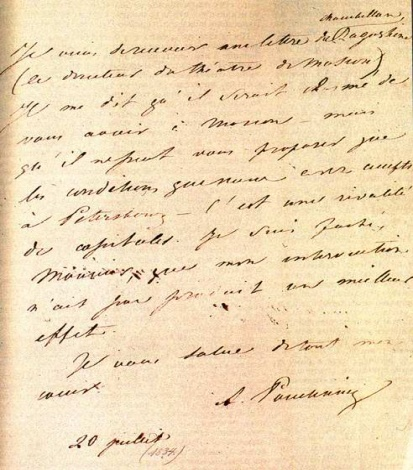 chambellan,
Je viens de recevoir une lettre de Zagoskine
(le directeur du théâtre de Moscou)
Il me dit qu'il serait charmé de
vous avoir à Moscou – mais
qu'il ne peut vous proposer que
les conditions que vous avez
à Petersbourg – C'est une rivalité
de capitales. Je suis fâché,
Monsieur, que mon intervention
n'ait pas produit un meilleur
effet.
Je vous salue de tout mon
coeur.
A. Pouchkine
20 juillet (1834)